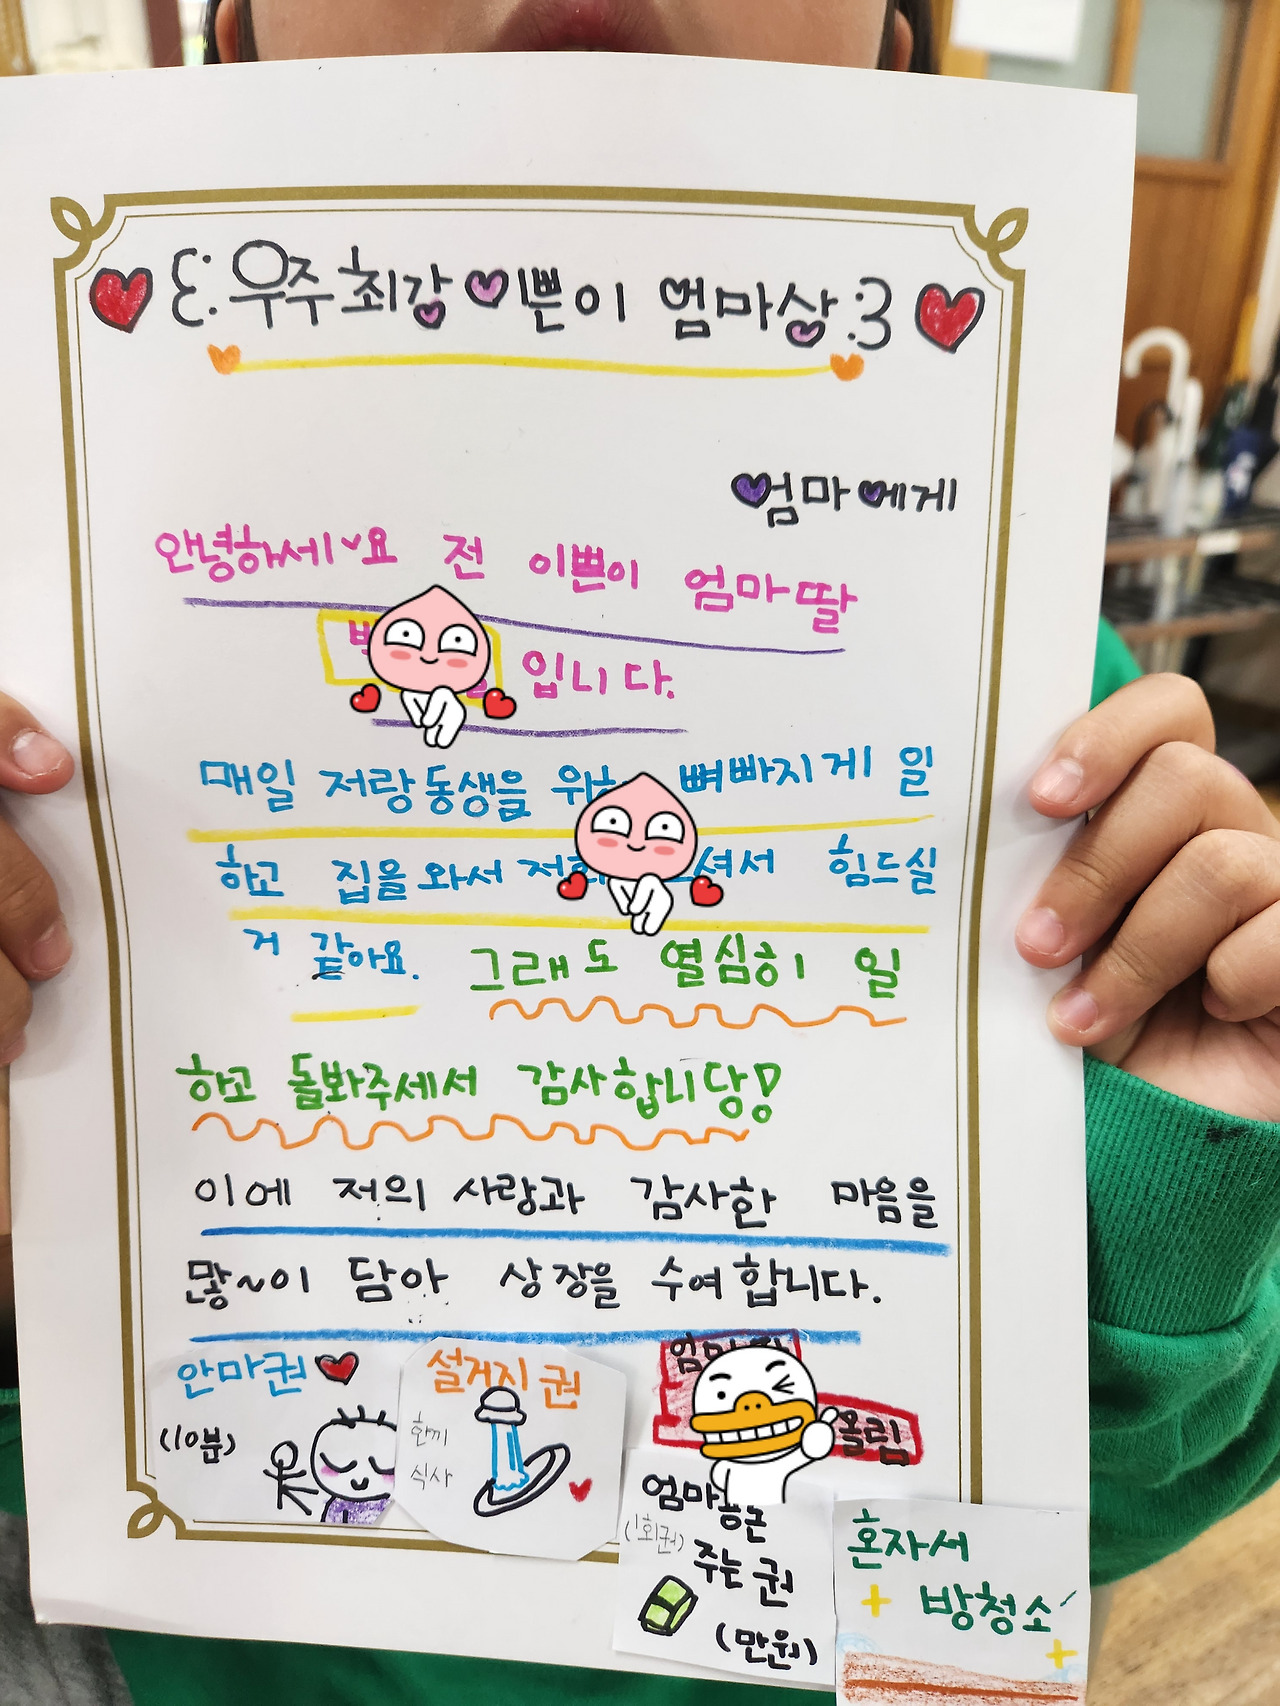 우주최강 이쁜이 엄마상
엄마에게
안녕하세요 전 이쁜이 엄마딸
입니다.
매일 저랑동생을 위해 뼈빠지게 일
하고 집을 와서 저희 셔서 힘드실
거 같아요. 그래도 열심히 일
하고 돌봐주세서 감사합니당!
이에 저의 사랑과 감사한 마음을
많~이 담아 상장을 수여합니다.
안마권
(10분)
설거지권
한끼
식사
엄마
올림
엄마용돈
(1회권)
주는권
(만원)
혼자서
방청소